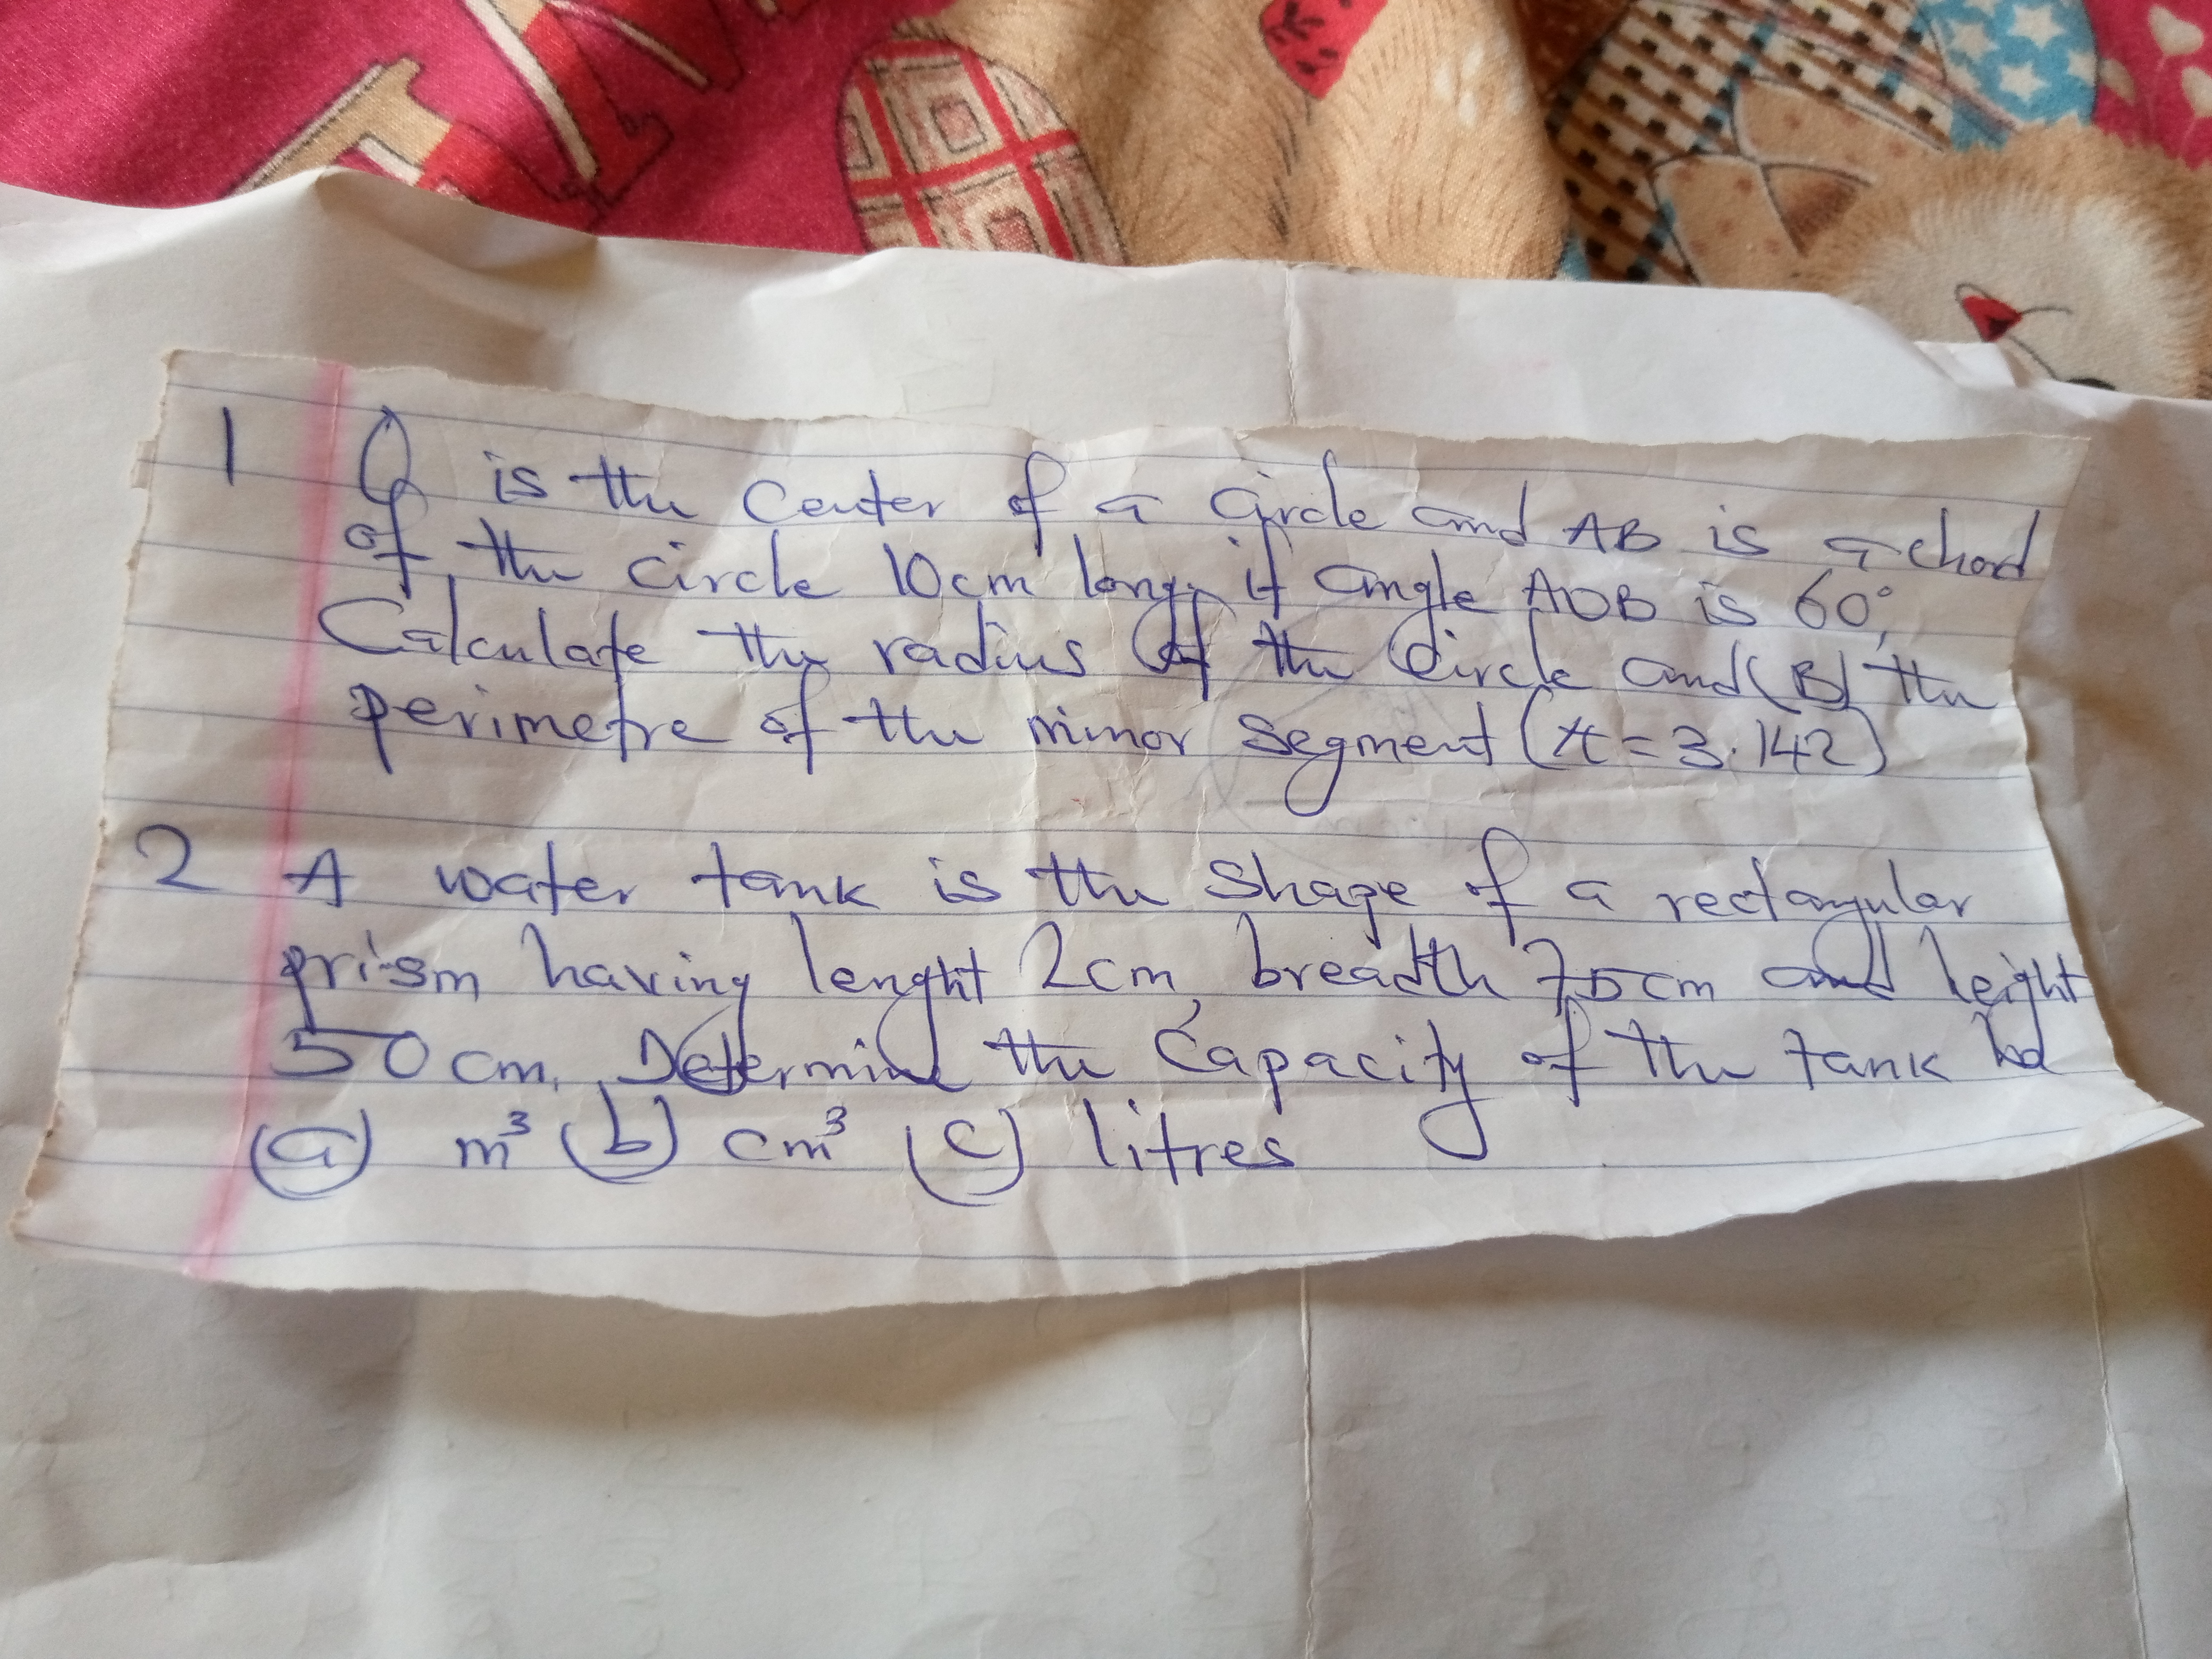 1 O is the Center of a Circle and AB is a chord
of the circle 10cm long, if angle AOB is 60°,
Calculate the radius of the Circle and (B) the
perimetre of the minor segment (π = 3.142)
2 A water tank is the shape of a rectangular
prism having lenght 2cm, breadth 75cm and height
50cm. Determine the Capacity of the tank
(a) m³ (b) cm³ (c) litres